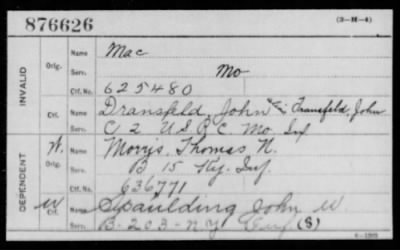 876626
(3-M-4)
INVALID
Orig.
Name Mac
Serv. Mo
Ctf. No. 625480
Ctf.
Name Dransfeld, John Transfeld, John
Serv. C 2 U S R C Mo Inf
DEPENDENT
W. Orig.
Name Morris, Thomas N.
Serv. B 15 Ky. Inf.
Ctf. No. 636771
W Ctf.
Name Spaulding John W.
Serv. B-203-N.Y. Inf (S)